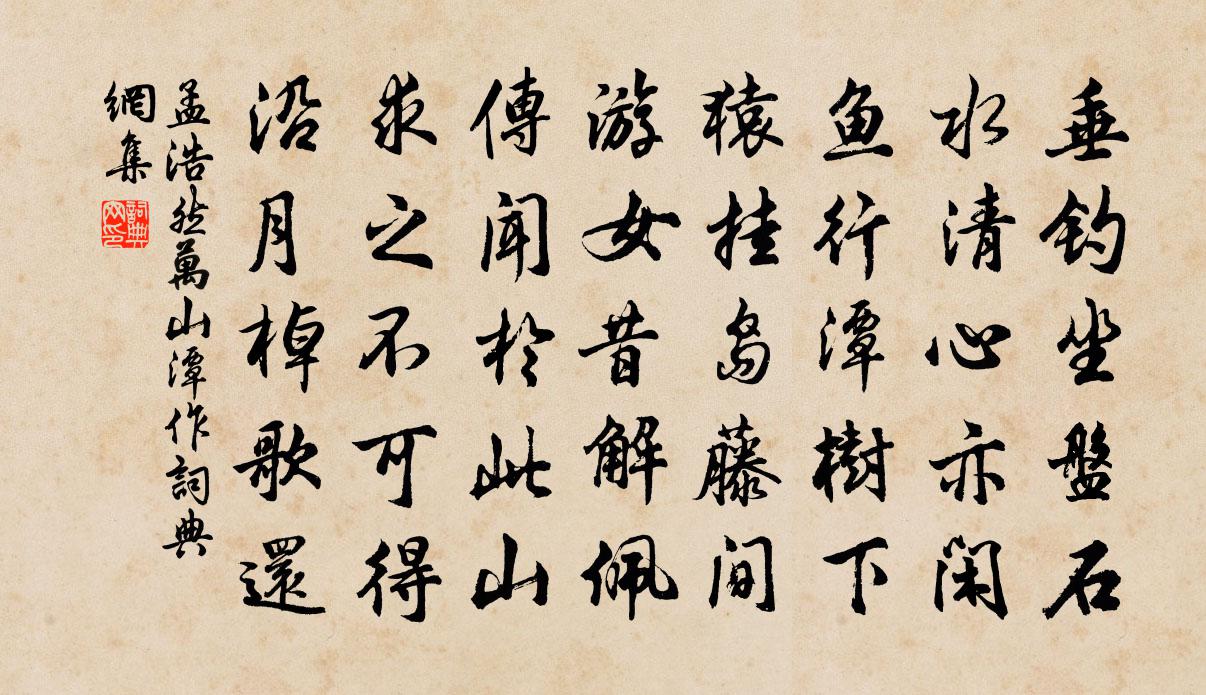 垂釣坐盤石
水清心亦閑
魚行潭樹下
猿挂島藤間
游女昔解佩
傳聞於此山
求之不可得
沿月棹歌還
孟浩然萬山潭作詞典
網集
詞典
网印